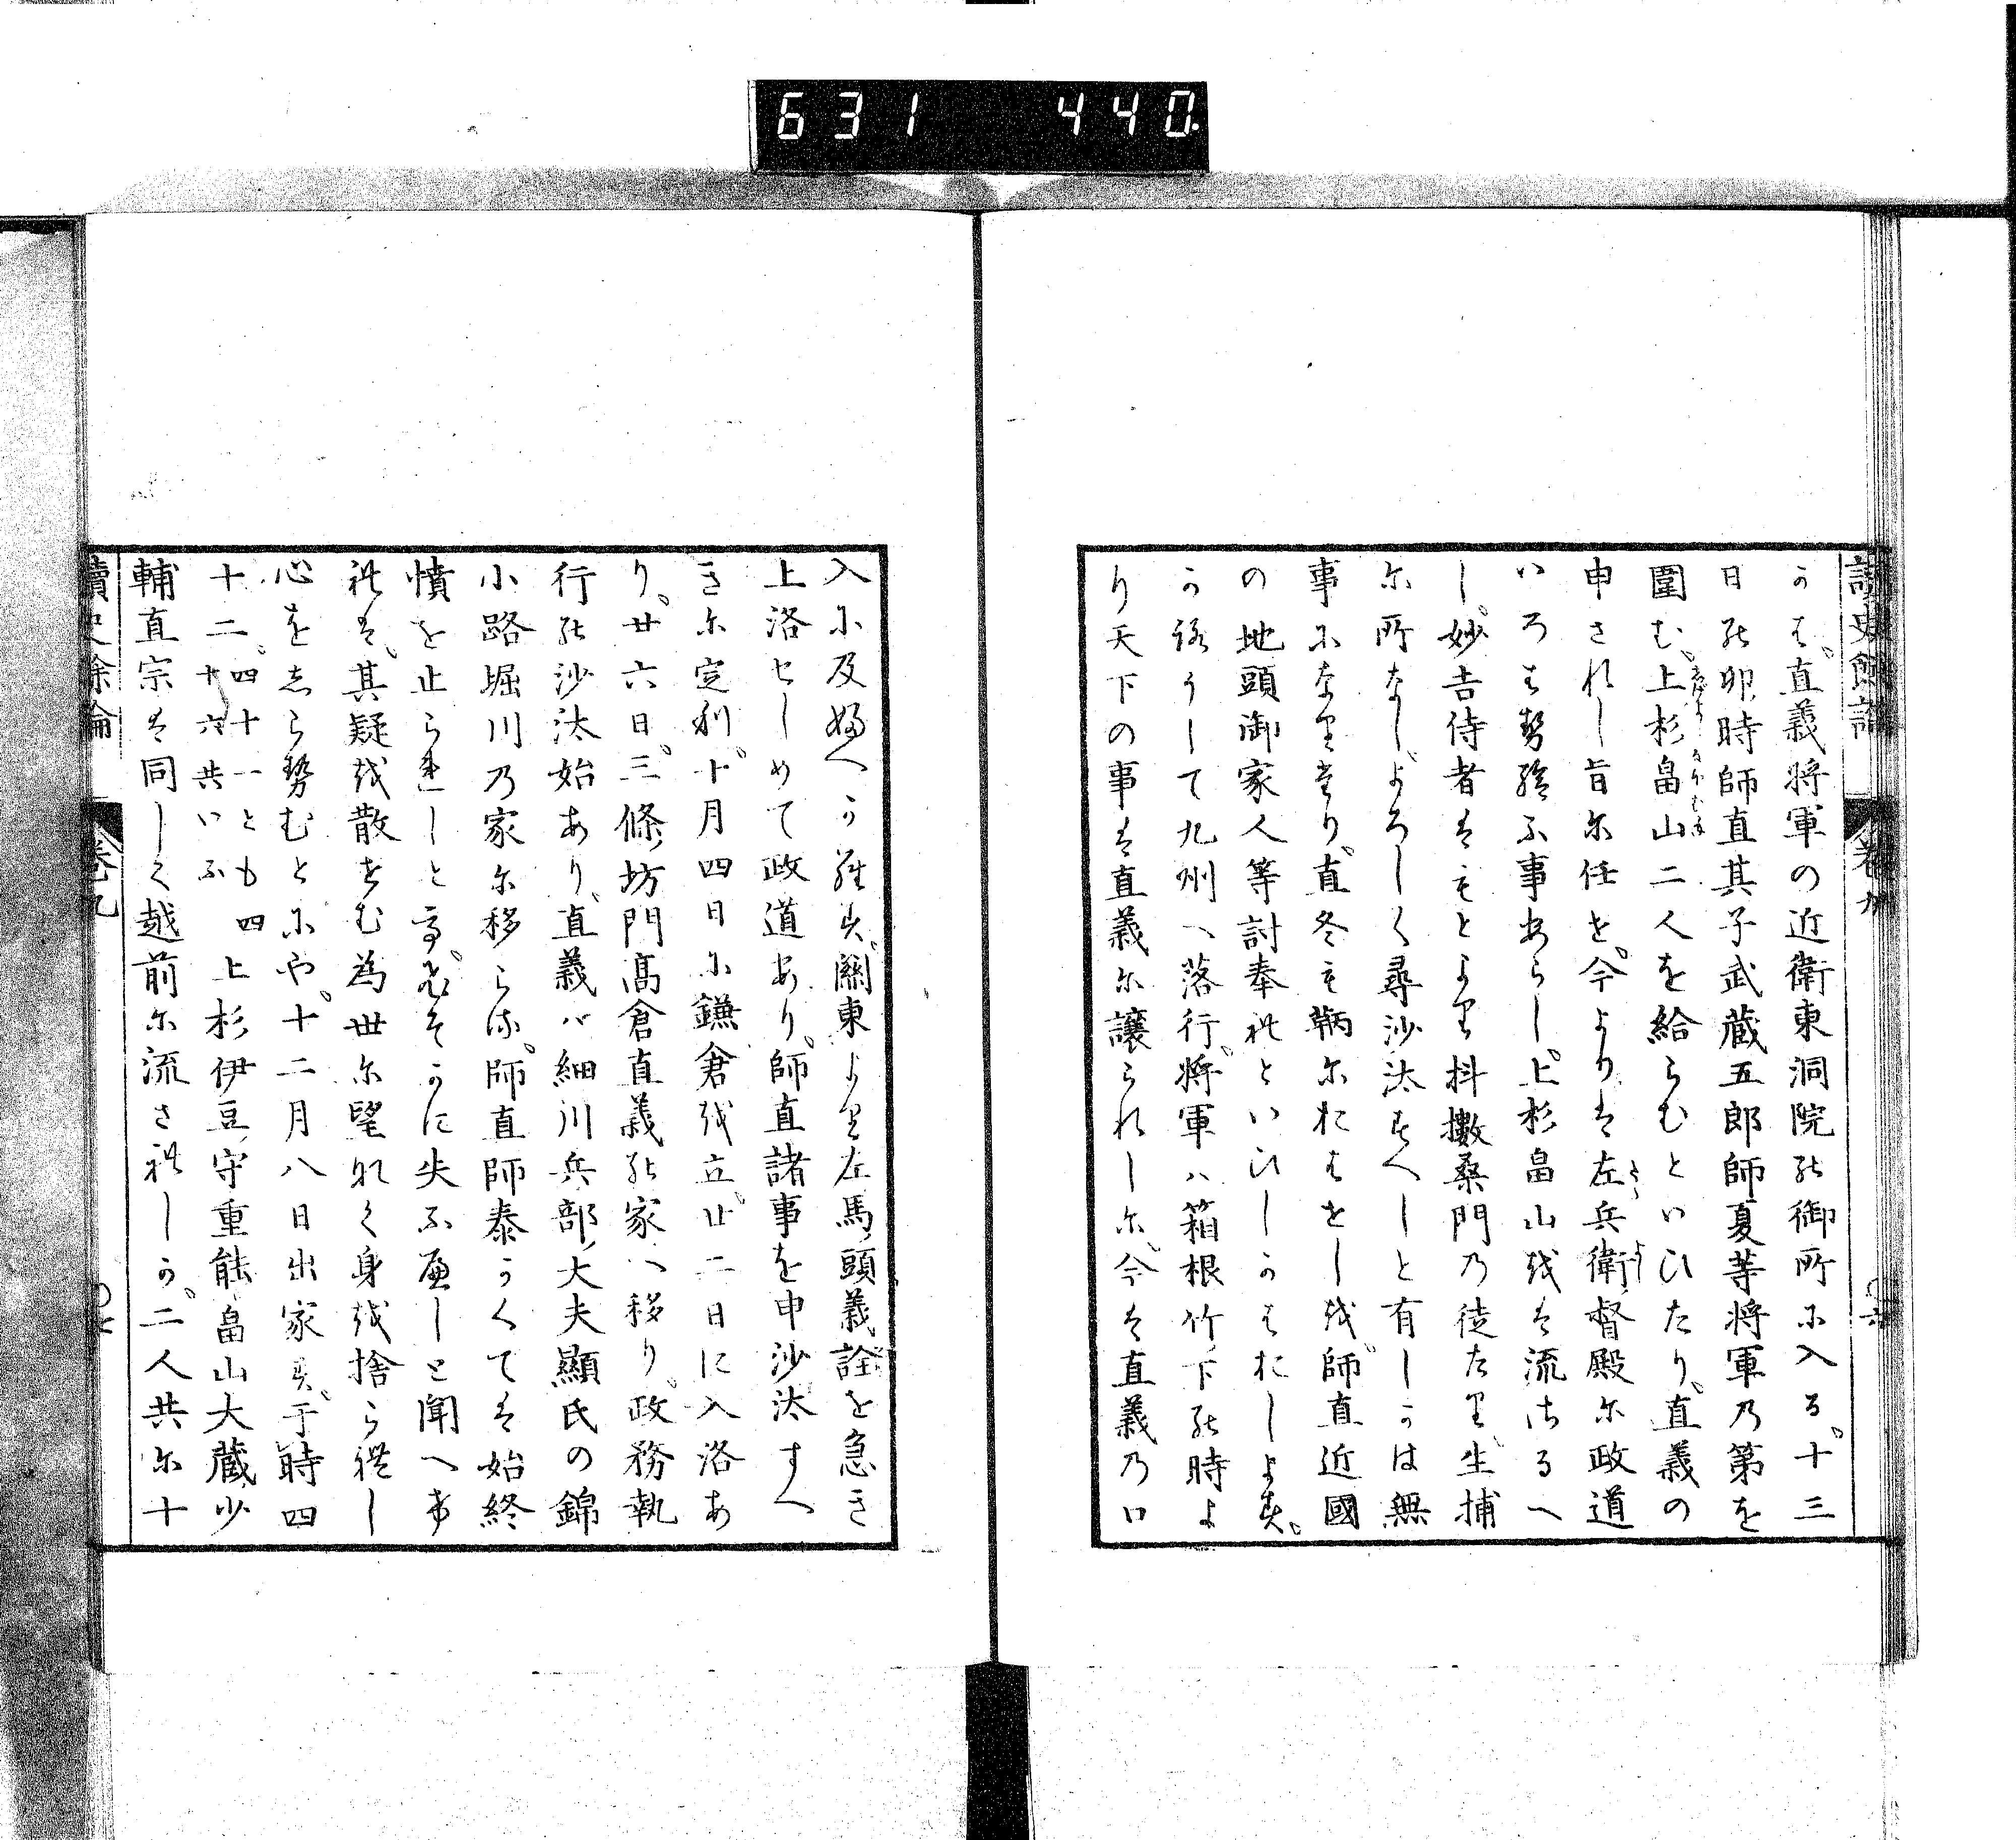 631 440.
讀史餘論 卷九 〇六
うは゛直義将軍の近衛東洞院の御所に入る。十三
日の卯、時師直其子武蔵五郎師夏等将軍の第を
圍む。上杉畠山二人を給らむといひたり。直義の
申されし旨に任せ。今よりは左兵衛、督殿に政道
いろはせ給ふ事あらし。上杉畠山をは流さるへ
し。妙吉侍者はもとより抖擻桑門の徒たり。生捕
に所なし。よろしく尋沙汰すへしと有しかは無
事になりたり。直冬も鞆におはせしを。師直近國
の地頭御家人等討奉れといひしかはおしよす。
かろうして九州へ落行。将軍ハ箱根竹、下の時よ
り天下の事は直義に譲られしに。今は直義の口
入に及ふへからす。關東より左馬、頭義詮を急き
上洛せしめて政道あり。師直諸事を申沙汰すへ
きに定れり。十月四日に鎌倉を立。廿二日に入洛あ
り。廿六日。三條、坊門高倉直義の家へ移り。政務執
行の沙汰始あり。直義ハ細川兵部、大夫顯氏の錦
小路堀川の家に移らる。師直師泰かくては始終
憤を止られしと
れは。其疑を散せむ為世に望なく身を捨られし
心をしらせむとにや。十二月八日出家す。于時四
十二。四十一とも四十六共いふ 上杉伊豆、守重能畠山大蔵、少
輔直宗は同しく越前に流されしか。二人共に十
讀史餘論 卷九 〇七